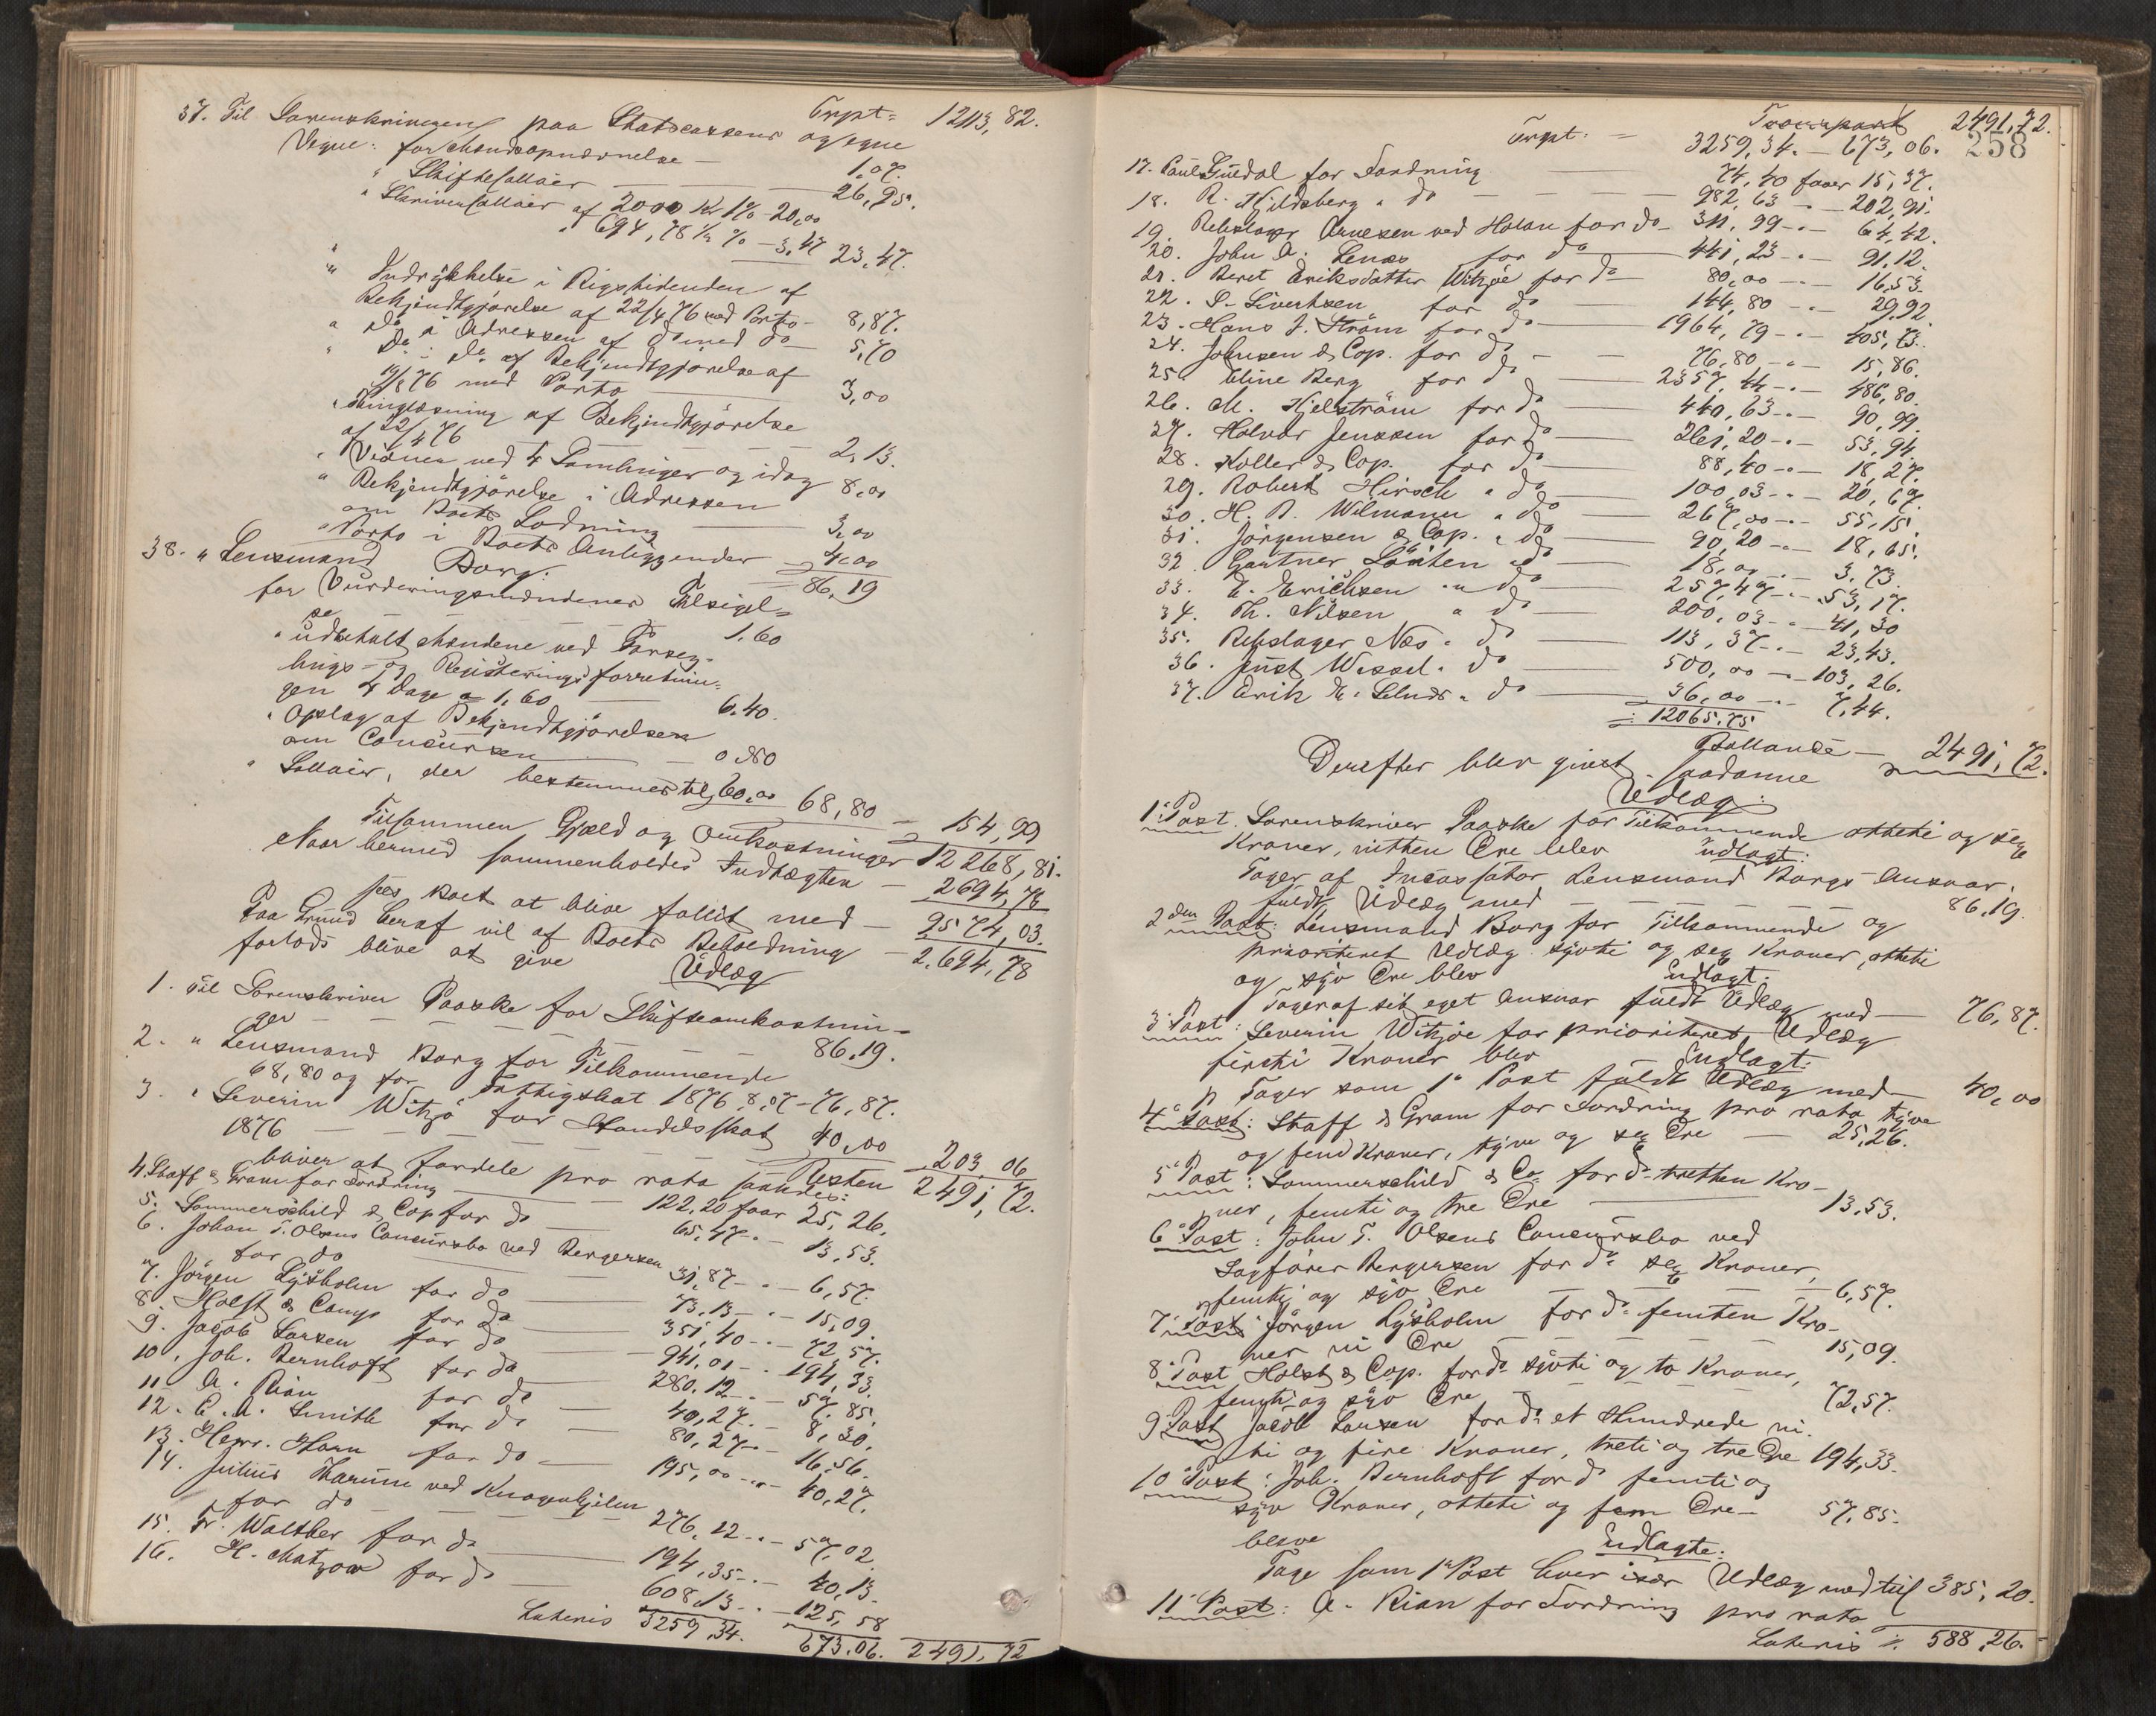 Trpt = 12113,82.
37. Til Sorenskriveren paa Statscassens og egne
Vegne: for Mandsopnævnelse — 1,07.
" Skiftesallair — 26,95.
" Skriversallair af 2000 Kr 1% - 20,00
" 694,78 ½ % — 3,47 23,47.
" Indrykkelse i Rigstidenden af
Bekjendtgjørelse af 22/4 76 med Porto — 8,87.
" Do i Adressen af do med do — 5,70
" Do i do af Bekjendtgjørelse af
19/8 76 med Porto — 3,00
" Thinglæsning af Bekjendtgjørelse
af 22/4 76 — 2,13.
" Vidner ved 4 Samlinger og idag 8,00
" Bekjendtgjørelse i Adressen
om Boets Lodning — 3,00
" Porto i Boets Anliggender — 4,00
86,19
38. " Lensmand Borg:
for Vurderingsmændenes Tilsigel=
se — 1.60
" udbetalt Mændene ved Forseg=
lings- og Registreringsforretnin=
gen 4 Dage a 1,60 — 6.40.
" Opslag af Bekjendtgjørelsen
om Concursen — 0.80
" Sallair, der bestemmes til, 60,00 68,80 — 154,99
Tilsammen Gjæld og Omkostninger 12268,81.
Naar hermed sammenholdes Indtægten — 2694,78
sees Boet at blive fallit med — 9574,03.
Paa Grund heraf vil af Boets Beholdning — 2.694,78
forlods blive at give Udlæg
1. Til Sorenskriver Paaske for Skifteomkostnin=
ger — 86.19.
2. " Lensmand Borg for Tilkommende
68,80 og for Fattigskat 1876 8,07 — 76,87.
3. " Severin Witzø for Handelsskat
1876 — 40,00 — 203,06
Resten 2491,72.
bliver at fordele pro rata saaledes:
4. Staff & Gram for Fordring — 122,20 faar 25,26.
5. Sommerschild & Cop for do — 65,47. — 13,53.
6. Johan T. Olsens Concursbo ved Bergersen
for do — 31,87 — 6,57.
7. Jørgen Lysholm for do — 73.13 — 15,09.
8. Holst & Comp for do — 351,40 — 72,57.
9. Jacob Larsen for do — 941,01 — 194,33.
10. Joh. Bernhoft for do — 280.12 — 57,85.
11. A. Rian for do — 40,27. — 8,30.
12. C. A. Smith for do — 80,27 — 16,56.
13. Herr. Horn for do — 195,00 — 40,27.
14. Julius Thamme ved Knagenhjelm
for do — 276,12 — 57,02.
15. Fr. Walther for do — 194,35 — 40,13.
16. H. Matzow for do — 608,13 — 125,58
Lateris 3259,34. 673.06. 2491,72
Transport 2491,72.
258
Trpt: — 3259,34. — 673,06.
17. Paul Guldal for Fordring — 74,40 faaer 15,37.
18. R. Kjeldsberg " do — 982,63 — 202,91.
19. Rebslager Arnesen ved Holan for do — 311,99 — 64,42.
20. John A. Lenæs for do — 441,23 — 91,12.
21. Beret Eriksdatter Witzøe for do — 80,00 — 16,53.
22. S. Sivertsen for do — 144,80 — 29,92
23. Hans J. Strøm for do — 1964,79 — 405,73.
24. Johnsen & Cop. for do — 76,80 — 15,86.
25. Eline Berg for do — 2357,44 — 486,80.
26. M. Kjelstrøm for do — 440,63 — 90,99.
27. Halvor Jenssen for do — 261,20 — 53,94.
28. Koller & Cop. for do — 88,40 — 18,27.
29. Robert Hirsch " do — 100,03 — 20,67.
30. H. B. Wilmann " do — 267,00 — 55,15.
31. Jørgensen & Cop. " do — 90,20 — 18,65.
32. Gartner Løiten " do — 18,00 — 3,73.
33. E. Erichsen " do — 257,47 — 53,17.
34. Th. Nilsen " do — 200,03 — 41,30
35. Rebslager Næs " do — 113,37 — 23,43.
36. Just Wessel " do — 500,00 — 103,26.
37. Erik E. Selnes " do — 36,00 — 7,44.
12065,75
Ballance — 2491,72.
Derefter blev givet saadanne
Udlæg:
1ste Post. Sorenskriver Paaske for Tilkommende otteti og sex
Kroner, nitten Øre blev
udlagt:
Tager af Incassator Lensmand Borgs Ansvar,
fuldt Udlæg med — 86,19.
2den Post: Lensmand Borg for Tilkommende og
prioriteret Udlæg sytti og sex Kroner, otteti
og syv Øre blev
Udlagt:
Tager af sit eget Ansvar fuldt Udlæg med — 76,87.
3die Post: Severin Witzøe for prioriteret Udlæg
firti Kroner blev
Udlagt:
Tager som 1ste Post fuldt Udlæg med — 40,00
4de Post: Staff & Gram for Fordring pro rata tyve
og fem Kroner, tyve og sex Øre — 25,26.
5te Post: Sommerschild & Co for do tretten Kro-
ner, femti og tre Øre — 13.53.
6te Post: John T. Olsens Concursbo ved
Sagfører Bergersen for do sex Kroner,
femti og syv Øre — 6,57.
7de Post: Jørgen Lysholm for do femten Kro-
ner ni Øre — 15,09.
8de Post Holst & Cop. for do sytti og to Kroner,
femti og syv Øre — 72,57.
9de Post Jacob Larsen for do et Hundrede ni-
ti og fire Kroner, treti og tre Øre 194,33.
10de Post: Joh. Bernhoft for do femti og
syv Kroner, otteti og fem Øre — 57,85.
bleve
Udlagte:
Tage som 1ste Post hver især Udlæg med til 385,20.
11te Post: A. Rian for Fordring pro rata
Lateris 588,26.